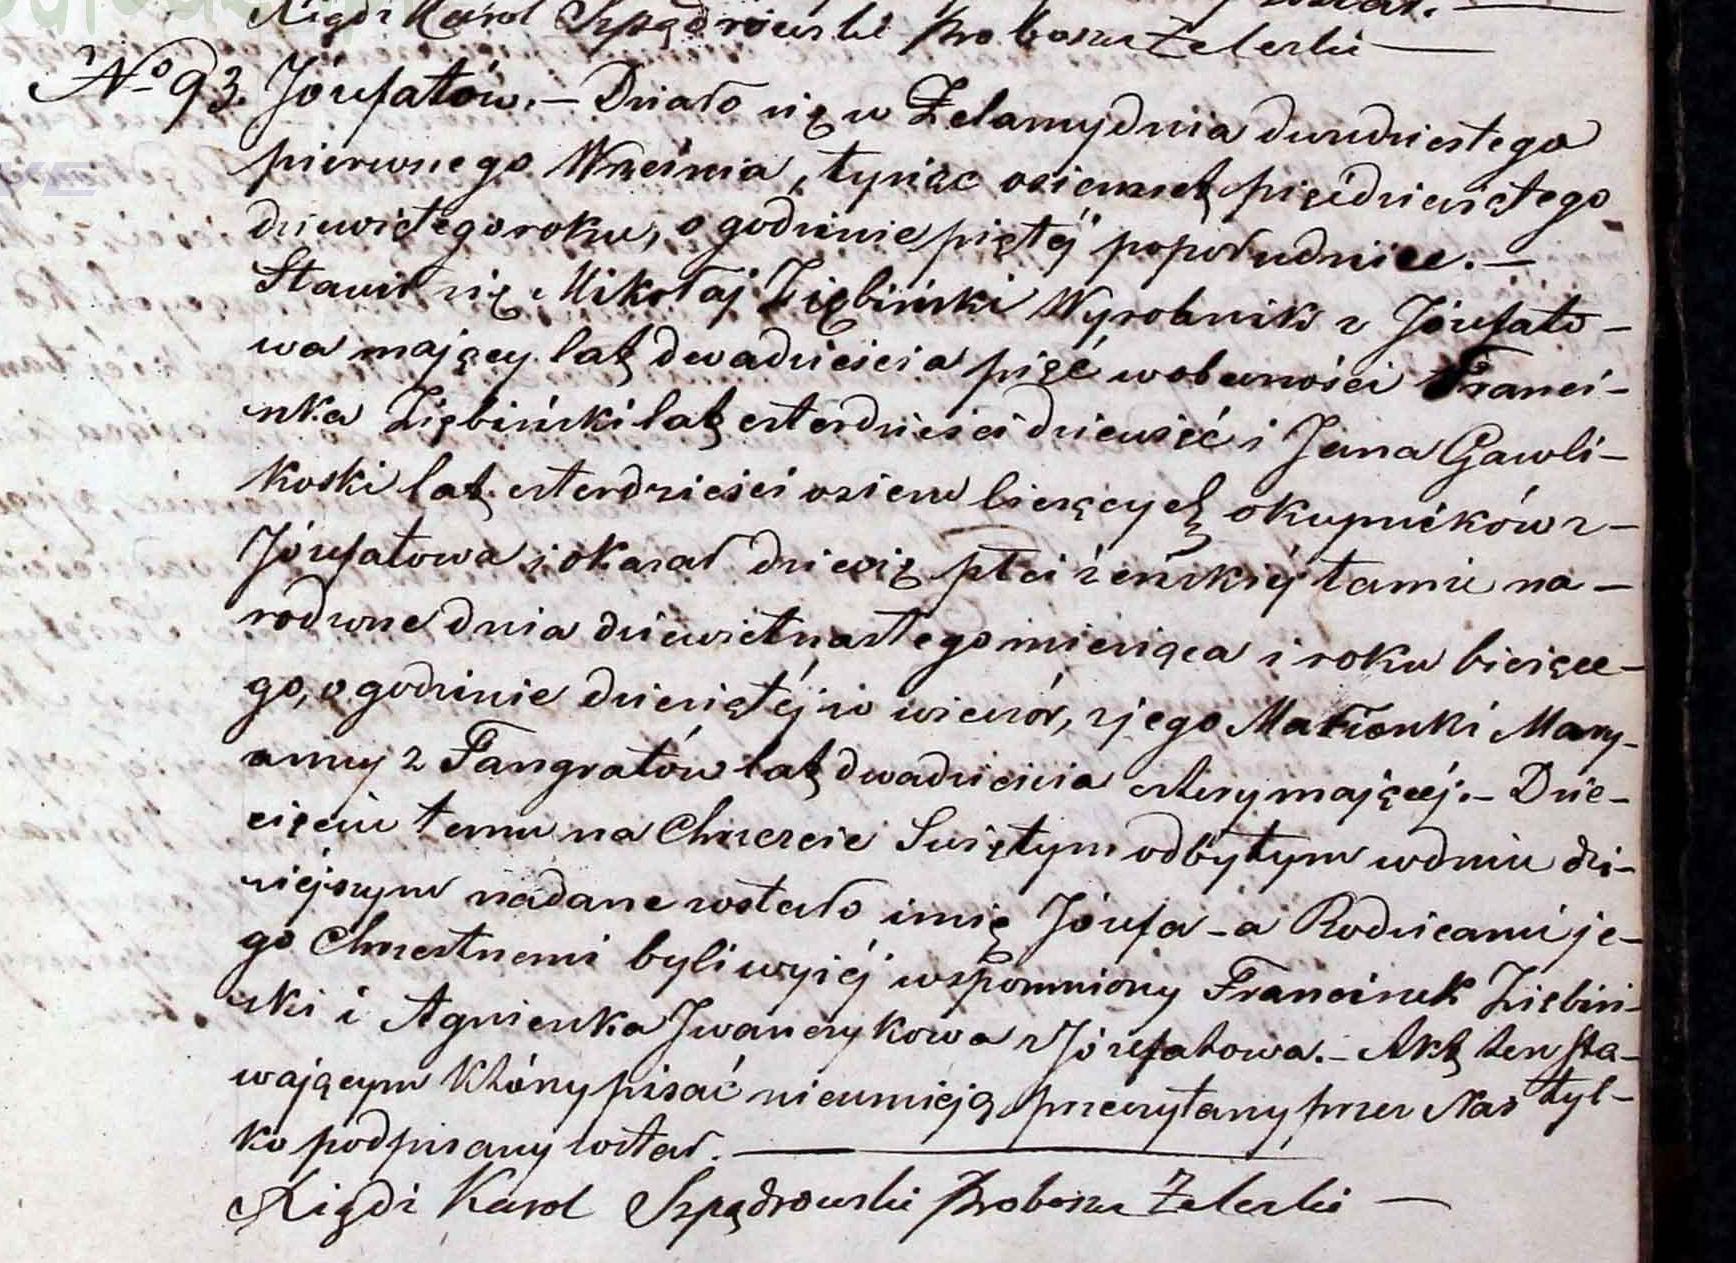 Xiądz Karol Szpądrowski Proboszcz Zelecki
No 93. Józefatów. – Działo się w Zelamy dnia dwudziestego
pierwszego Września, tysiąc ośiemset pięćdziesiątego
dziewiątego roku, o godzinie piątéj popołudniu. –
Stawił się Mikołaj Ziębiński Wyrobnik z Józefato-
wa mający lat dwadzieścia pięć w obecności Franci-
szka Ziębiński lat czterdzieści dziewięć i Jana Gawli-
koski lat czterdzieści ośiem liczących okupników z
Józefatowa i okazał dziecię płci żeńskiéj tamże na-
rodzone dnia dziewietnastego miesiąca i roku bieżące-
go, o godzinie dziesiątéj w wieczór, z jego Małżonki Mary-
anny z Fangratów lat dwadzieścia cztery mającéj. – Dzie-
cięciu temu na Chrzcie Świętym odbytym w dniu dzi-
siejszym nadane zostało imię Józefa – a Rodzicami je-
go Chrzestnemi byli wyżéj wspomniony Franciszek Ziębiń-
ski i Agnieszka Iwanczykowa z Józefatowa. – Akt ten sta-
wającym którzy pisać nieumieją przeczytany przez Nas tyl-
ko podpisany został.
Xiądz Karol Szpądrowski Proboszcz Zelecki